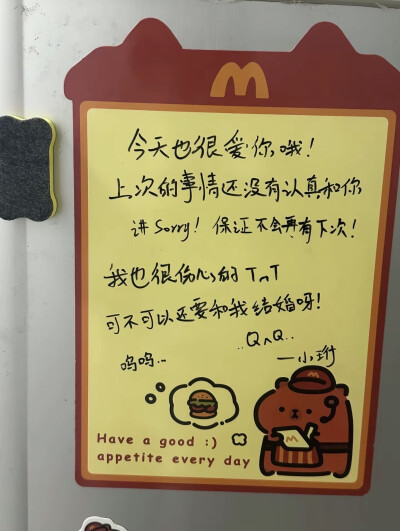 今天也很爱你哦!
上次的事情还没有认真和你
讲 Sorry! 保证不会再有下次!
我也很伤心的 TnT
可不可以还要和我结婚呀!
..QnQ..
呜呜...
—小珩
Have a good :)
appetite every day